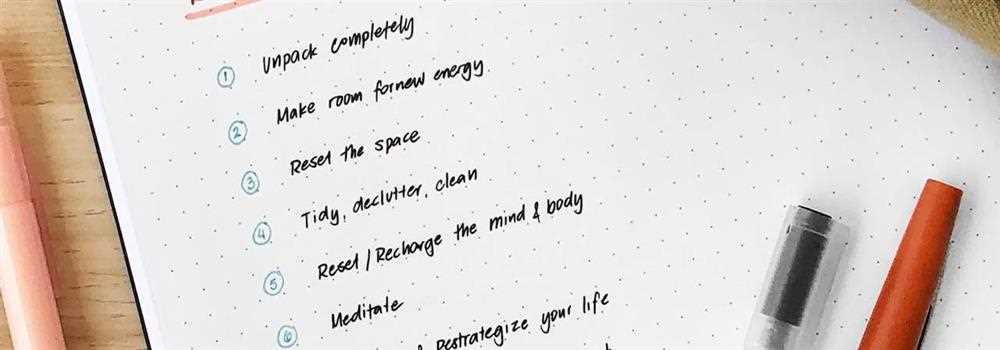 1 Unpack completely
2 Make room for new energy
3 Reset the space
4 Tidy, declutter, clean
5 Reset / Recharge the mind & body
6 Meditate
Restrategize your life